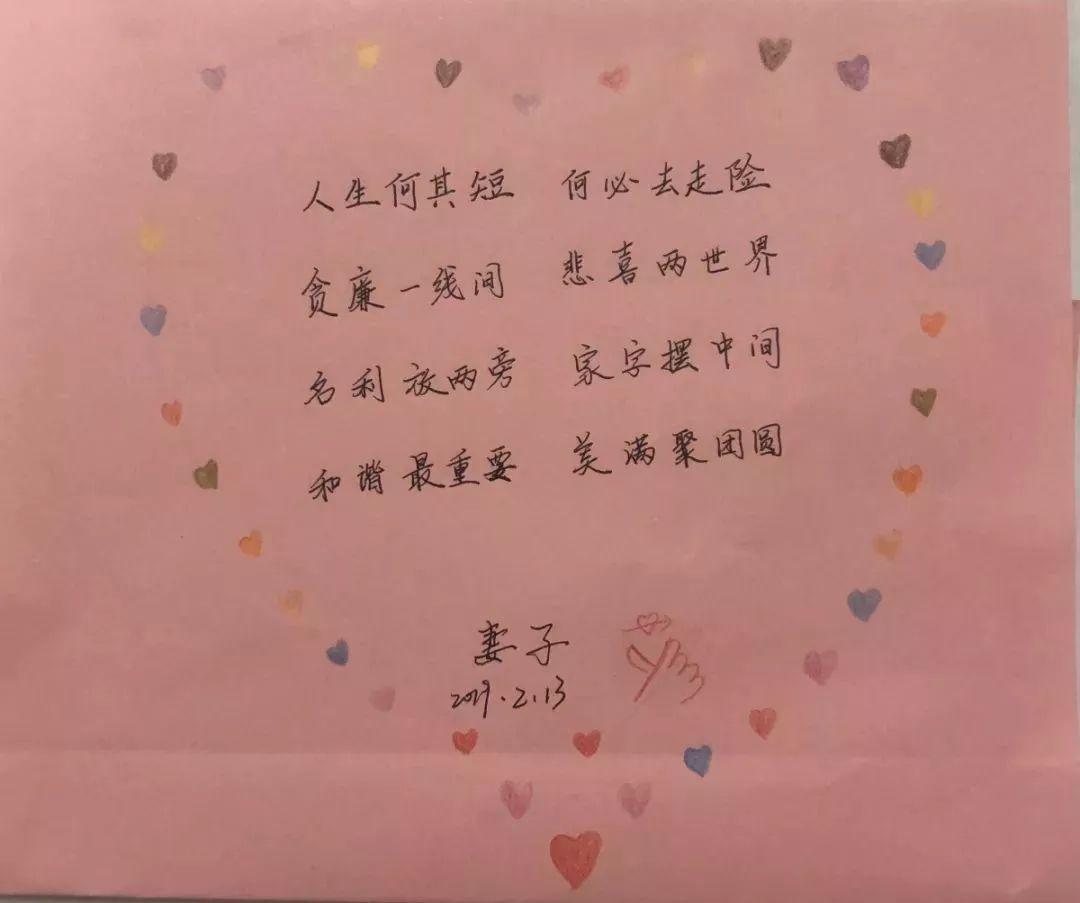 人生何其短 何必去走险
贪廉一线间 悲喜两世界
名利放两旁 家字摆中间
和谐最重要 美满聚团圆
妻子
2019.2.13